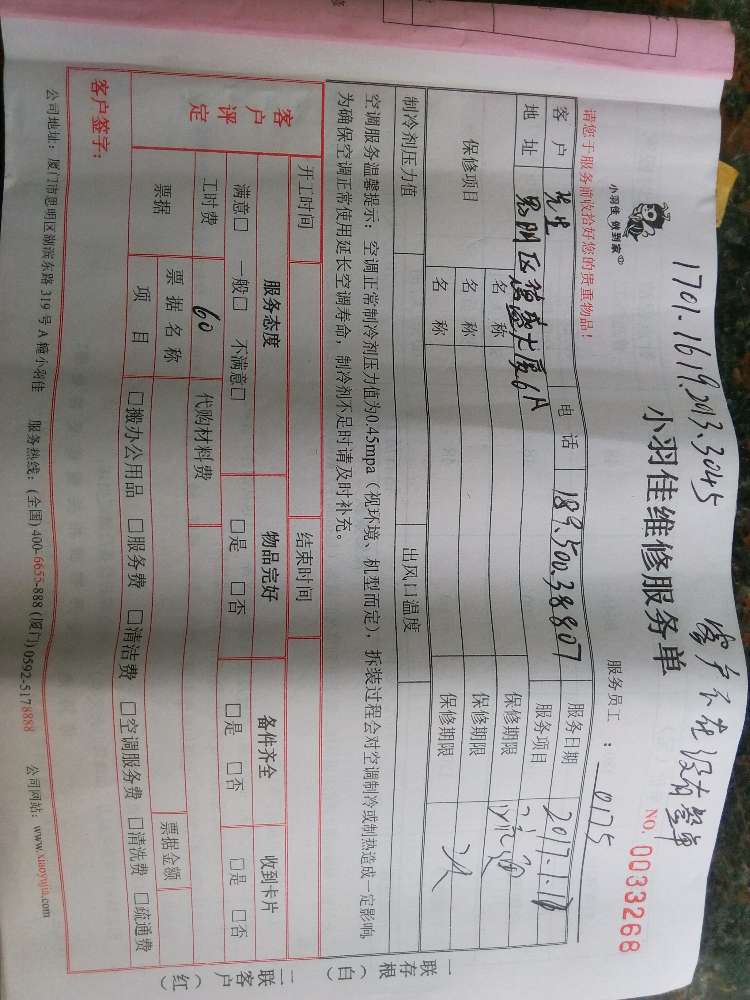 1701.1619.2013.3045
客户不在没有签单
小羽佳 做到家
小羽佳维修服务单
请您于服务前收拾好您的贵重物品!
服务员工 : 0175
NO. 0033268
客户 先生 电话 189.500.38807 服务日期 2017.1.17
地址 思明区 大厦6A 服务项目
保修项目 名称 保修期限
名称 保修期限
名称 保修期限
制冷剂压力值 出风口温度
空调服务温馨提示:空调正常制冷剂压力值为0.45mpa(视环境、机型而定),拆装过程会对空调制冷或制热造成一定影响,
为确保空调正常使用延长空调寿命,制冷剂不足时请及时补充。
开工时间 结束时间
客户评定 服务态度 物品完好 备件齐全 收到卡片
满意□ 一般□ 不满意□ □是 □否 □是 □否 □是 □否
工时费 60 代购材料费
票据 票据名称 票据金额
项目 □搬办公用品 □服务费 □清洁费 □空调服务费 □清洗费 □疏通费
客户签字:
公司地址:厦门市思明区湖滨东路 319 号 A 幢小羽佳 服务热线:(全国)400-6655-888 (厦门)0592-5178888 公司网站:www.xiaoyujia.com
一联存根(白)
二联客户(红)